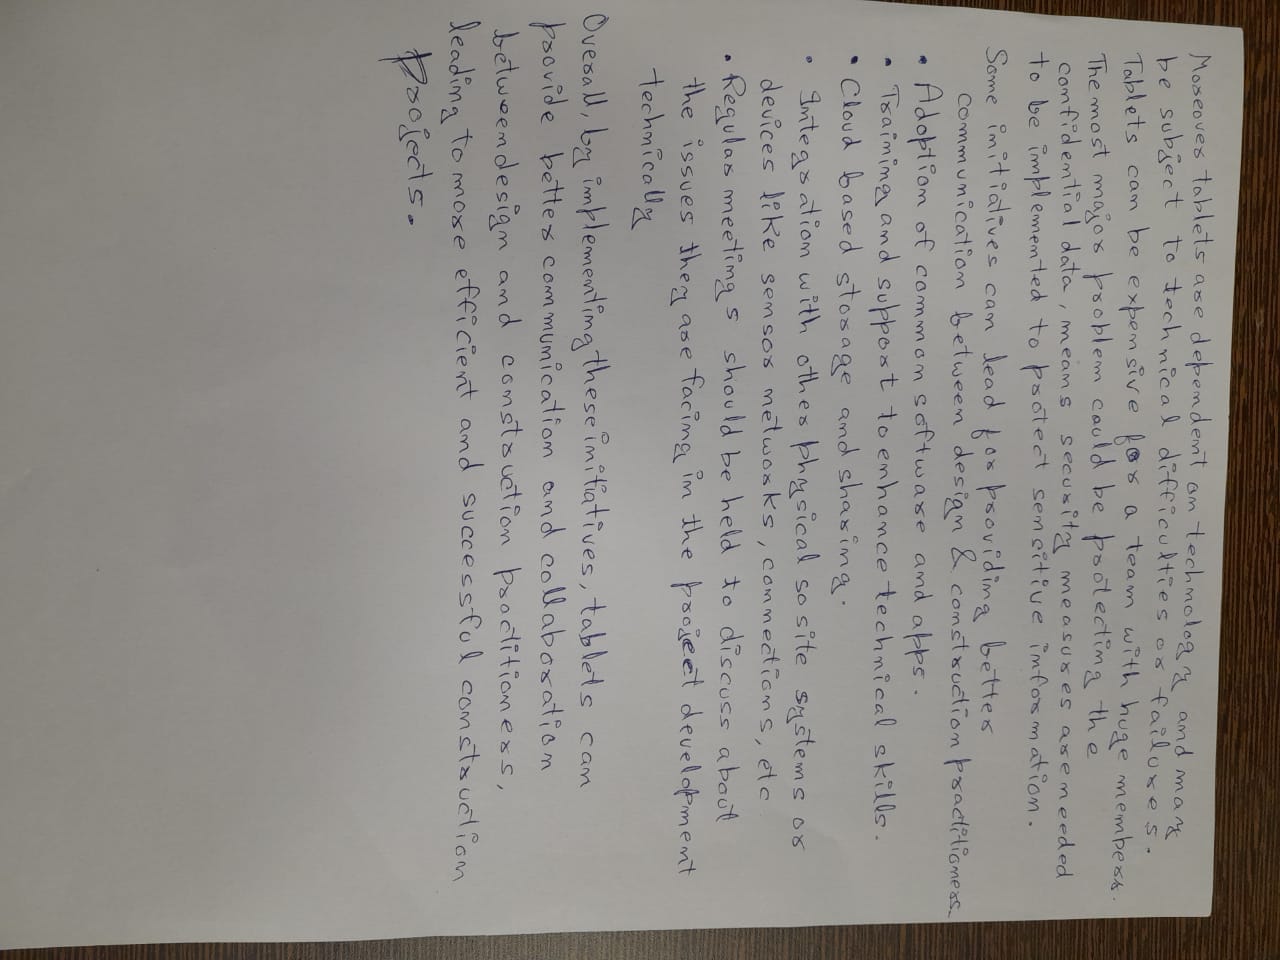 Moreover tablets are dependent on technology and may
be subject to technical difficulties or failures.
Tablets can be expensive for a team with huge members.
The most major problem could be protecting the
confidential data, means security measures are needed
to be implemented to protect sensitive information.
Some initiatives can lead for providing better
communication between design & construction practitioners.
• Adoption of common software and apps.
• Training and support to enhance technical skills.
• Cloud based storage and sharing.
• Integration with other physical so site systems or
devices like sensor networks, connections, etc
• Regular meetings should be held to discuss about
the issues they are facing in the project development
technically
Overall, by implementing these initiatives, tablets can
provide better communication and collaboration
between design and construction practitioners,
leading to more efficient and successful construction
projects.